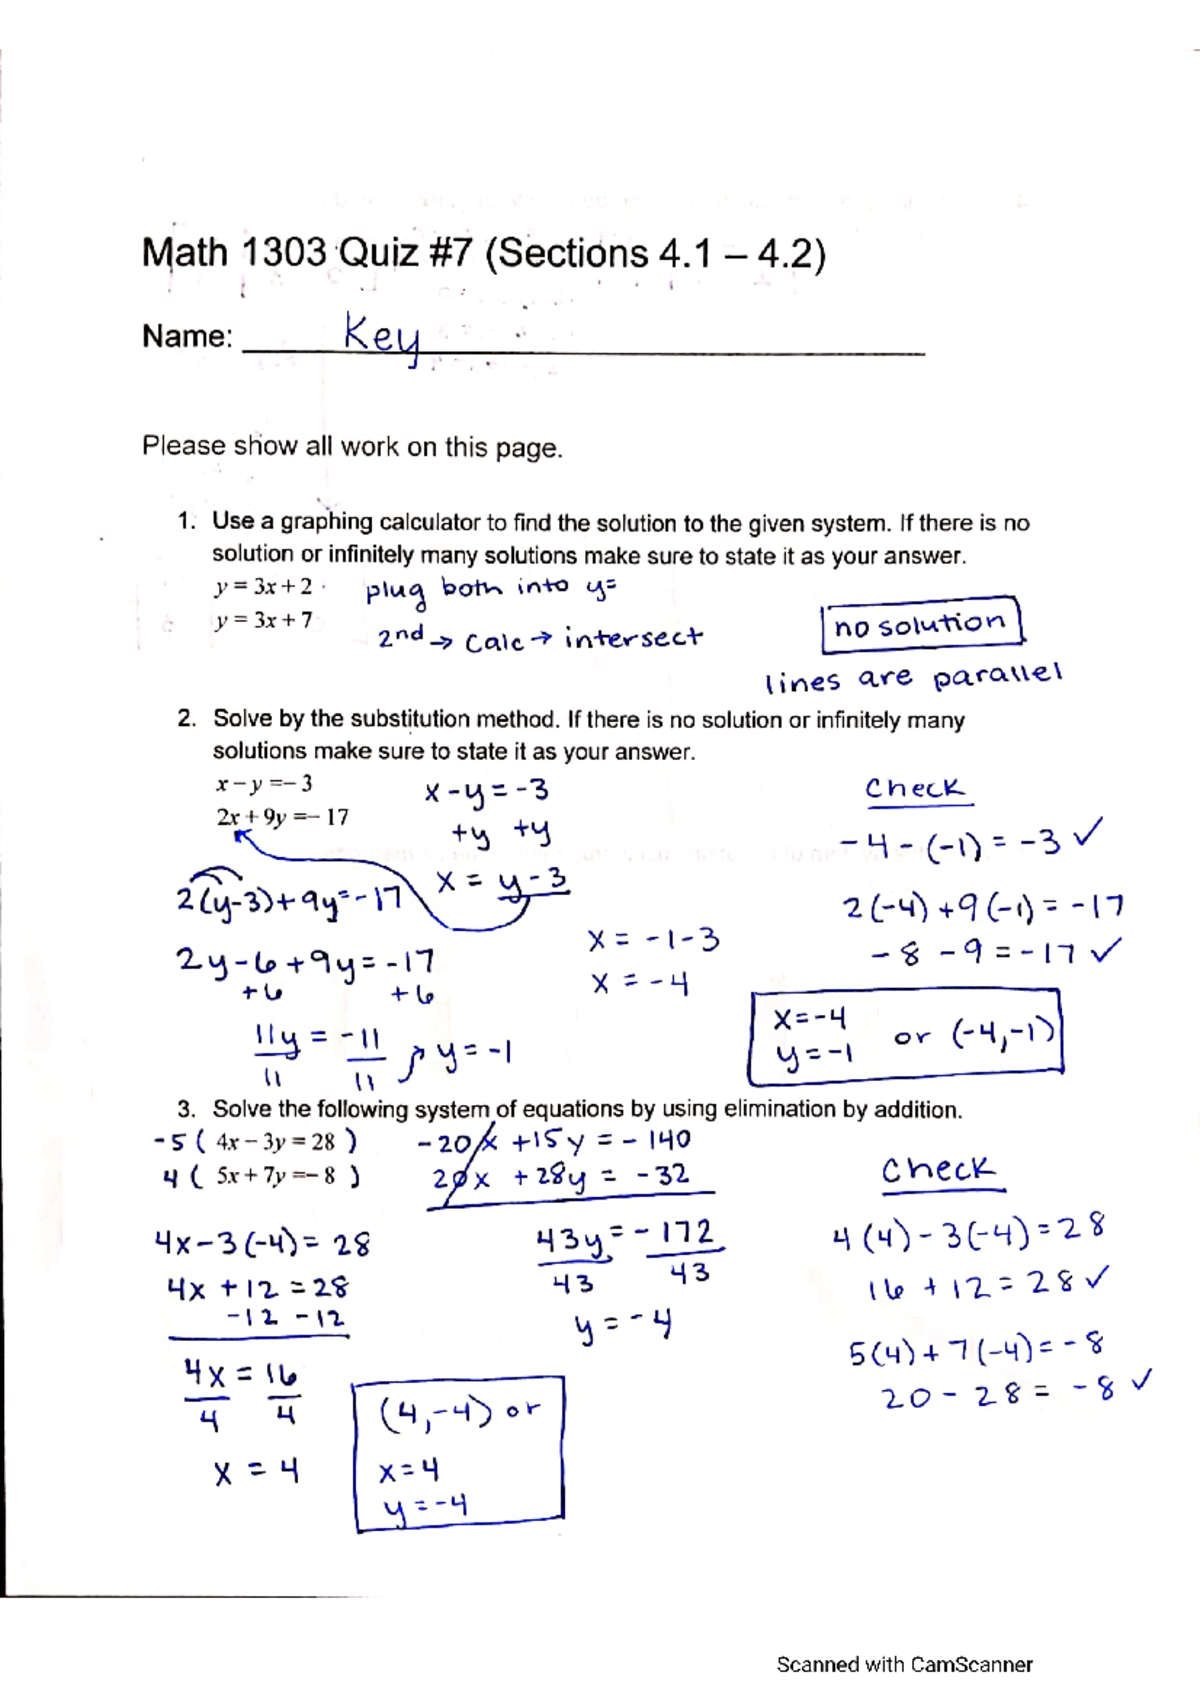 Math 1303 Quiz #7 (Sections 4.1 – 4.2)
Name: Key
Please show all work on this page.
1. Use a graphing calculator to find the solution to the given system. If there is no
solution or infinitely many solutions make sure to state it as your answer.
y = 3x + 2
y = 3x + 7
plug both into y=
2nd → Calc → intersect
no solution
lines are parallel
2. Solve by the substitution method. If there is no solution or infinitely many
solutions make sure to state it as your answer.
x – y =– 3
2x + 9y =– 17
x - y = -3
+y +y
x = y - 3
2(y-3)+9y=-17
2y-6+9y=-17
+6 +6
11y = -11
11 11
y = -1
x = -1-3
x = -4
Check
-4-(-1) = -3 ✓
2(-4)+9(-1) = -17
-8 -9 = -17 ✓
x=-4
y=-1
or (-4,-1)
3. Solve the following system of equations by using elimination by addition.
-5 ( 4x – 3y = 28 )
4 ( 5x + 7y =– 8 )
-20x +15y = -140
20x +28y = -32
43y = -172
43 43
y = -4
4x-3(-4)= 28
4x +12 = 28
-12 -12
4x = 16
4 4
x = 4
(4,-4) or
x=4
y=-4
Check
4(4)-3(-4)=28
16 + 12 = 28 ✓
5(4)+7(-4)=-8
20 - 28 = -8 ✓
Scanned with CamScanner